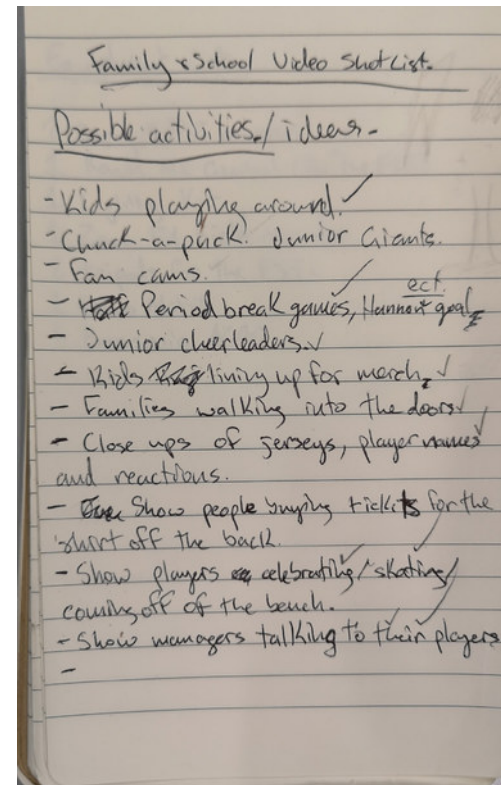 Family & School Video Shot List.
Possible activities./ideas-
- Kids playing around. ✓
- Chuck-a-puck. Junior Giants.
- Fan cams.
ect.
- Period break games, goal
- Junior cheerleaders. ✓
- Kids lining up for merch, ✓
- Families walking into the doors ✓
- Close ups of jerseys, player names ✓
and reactions.
- Show people buying tickets for the
shirt off the back. ✓
- Show players celebrating/skating/
coming off of the bench.
- Show managers talking to their players
-